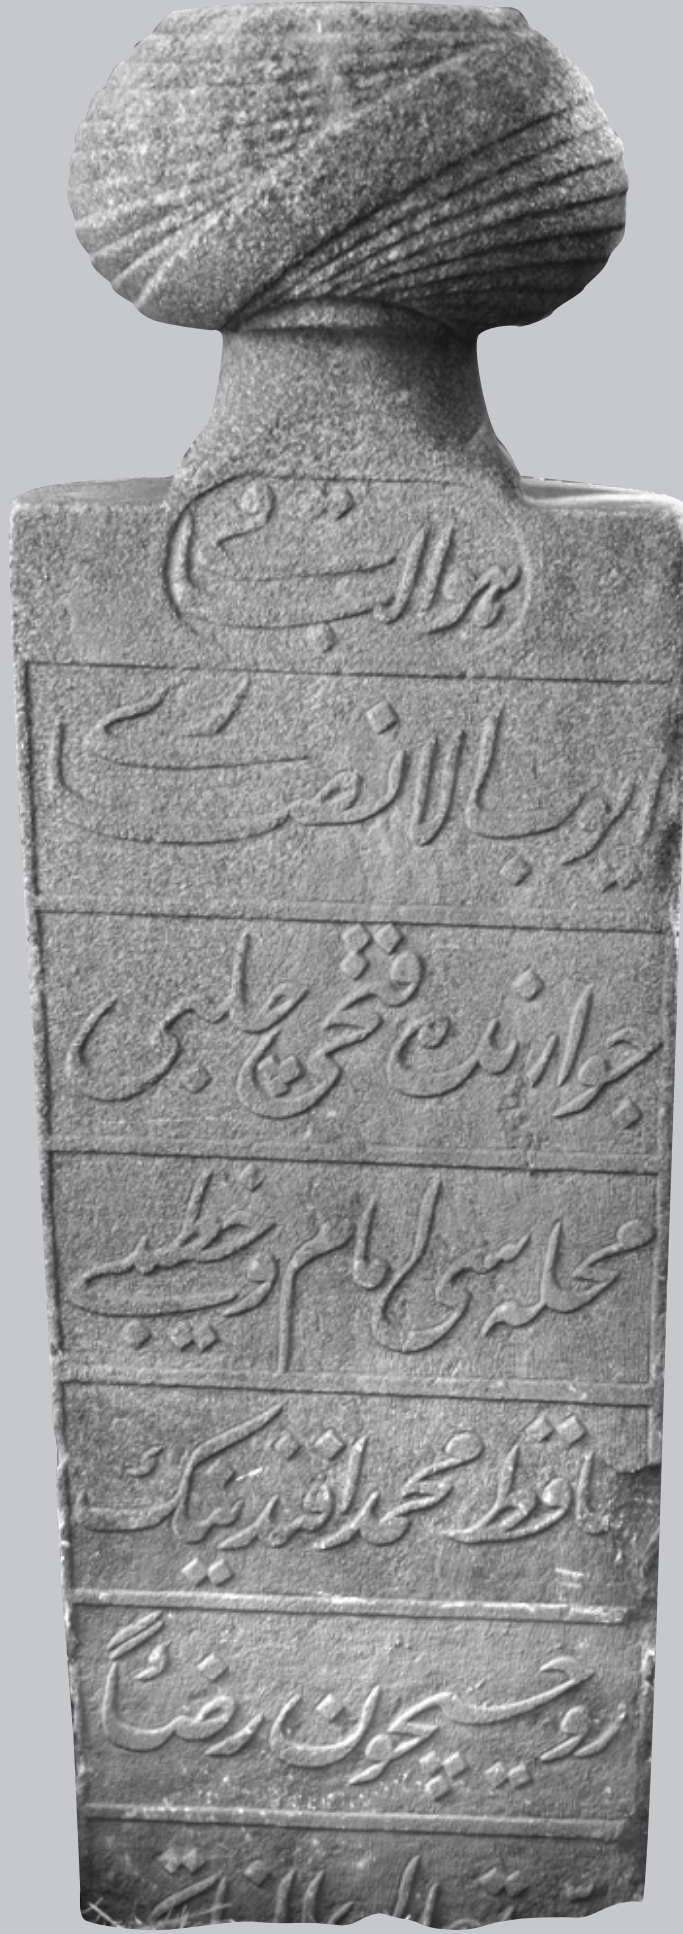 هو الباقی
ایوب الانصاری
جوارنده فتحی چلبی
محله سی امام و خطیبی
حافظ محمد افندینیك
روحیچون رضاءً